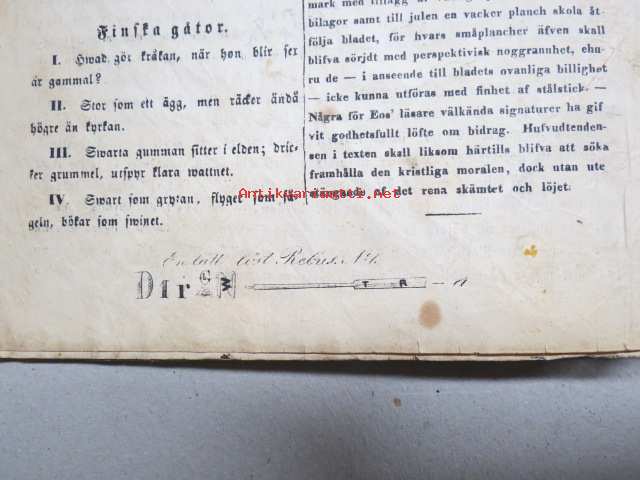 Finska gåtor.
I. Hwad gör kråkan, när hon blir sex
år gammal?
II. Stor som ett ägg, men räcker ändå
högre än kyrkan.
III. Swarta gumman sitter i elden; dric-
ker grummel, utspyr klara wattnet.
IV. Swart som grytan, flyget som få-
geln, bökar som swinet.
bilagor samt till julen en vacker planch skola åt-
följa bladet, för hvars småplancher äfven skall
blifva sörjdt med perspektivisk noggrannhet, ehu-
ru de — i anseende till bladets ovanliga billighet
— icke kunna utföras med finhet af stålstick. —
Några för Eos' läsare välkända signaturer ha gif
vit godhetsfullt löfte om bidrag. Hufvudtenden-
sen i texten skall liksom härtills blifva att söka
framhålla den kristliga moralen, dock utan ute
af det rena skämtet och löjet.
Rebus. N:1.
D I r W T R — n